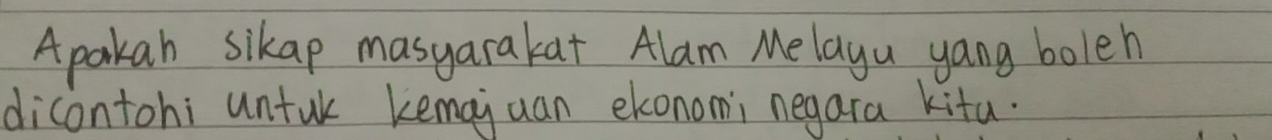 Apakah sikap masyarakat Alam Melayu yang boleh
dicontohi untuk kemajuan ekonomi negara kita.